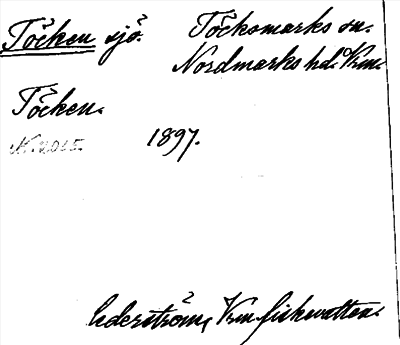 Töcken sjö. Töcksmarks sn.
Nordmarks hd. Vrm.
Töcken.
1897.
Cederström, Vrm. fiskvatten.